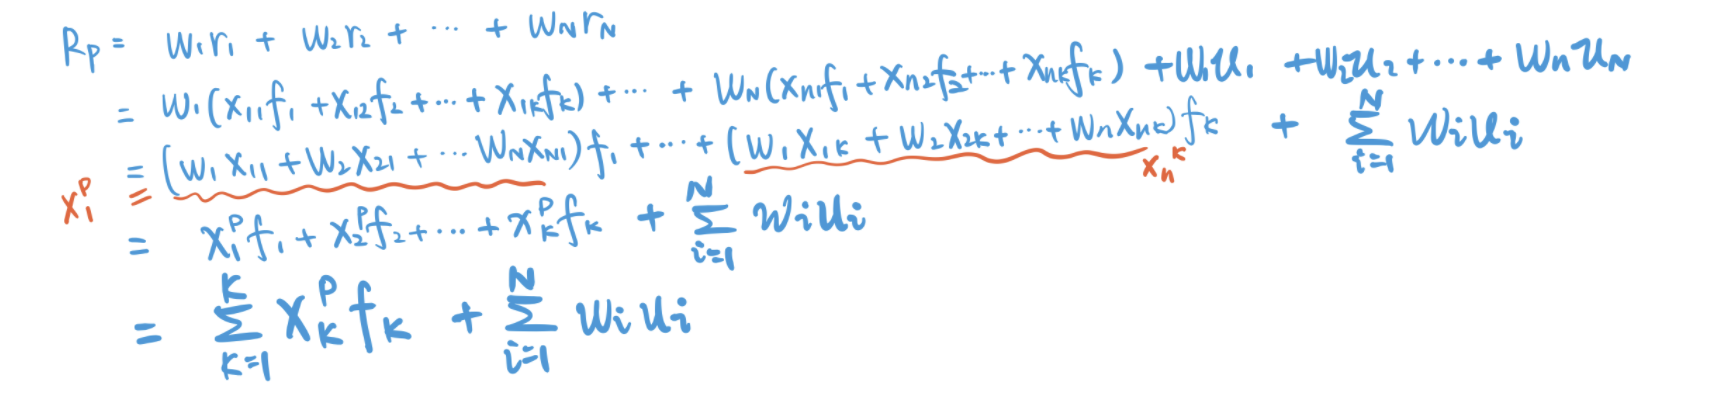 R_p = w_1r_1 + w_2r_2 + ... + w_Nr_N
= w_1(x_{11}f_1 + x_{12}f_2 + ... + x_{1k}f_k) + ... + w_N(x_{n1}f_1 + x_{n2}f_2 + ... + x_{nk}f_k) + w_1u_1 + w_2u_2 + ... + w_nu_N
= (w_1x_{11} + w_2x_{21} + ... w_Nx_{N1})f_1 + ... + (w_1x_{1k} + w_2x_{2k} + ... + w_nx_{nk})f_k + \sum_{i=1}^{N} w_iu_i
x_1^p ≡ x_n^k
= x_1^pf_1 + x_2^pf_2 + ... + x_k^pf_k + \sum_{i=1}^{N} w_iu_i
= \sum_{k=1}^{K} x_k^pf_k + \sum_{i=1}^{N} w_iu_i